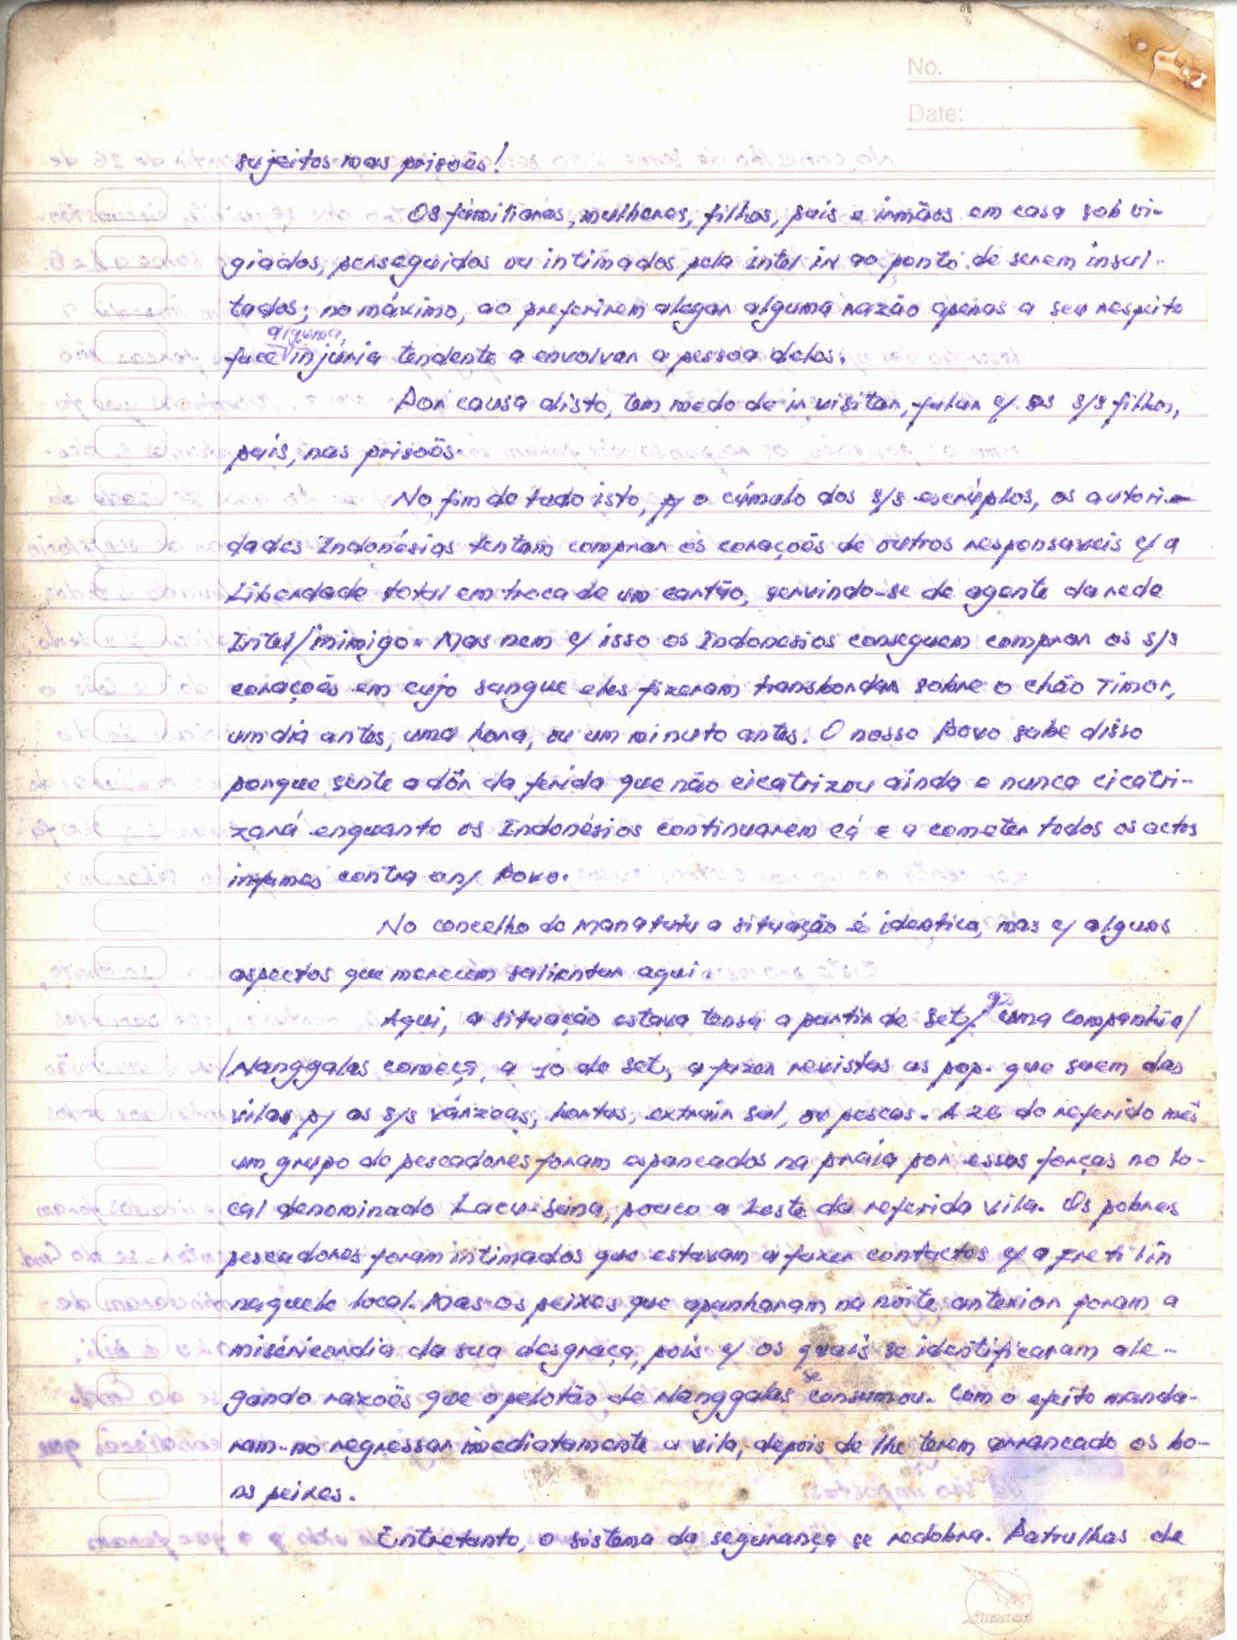 No.
Date:
sujeitos nas prisoẽs!
Os familiares, mulheres, filhos, pais e irmãos em casa sob vi-
giados, perseguidos ou intimados pela intel in ao ponto de serem insul-
tados; no máximo, ao preferirem alegar alguma razão apenas a seu respeito
face alguma injúria tendente a envolver a pessoa deles.
Por causa disto, tem medo de ir visitar, falar c/ os s/s filhos,
pais, nas prisoẽs.
No fim de tudo isto, p/ o cúmulo dos s/s escrúplos, os autori-
dades Indonésias tentam comprar os coraçoẽs de outros responsaveis c/ a
Liberdade total em troca de um cartão, servindo-se de agente da rede
Intel/inimigo. Mas nem c/ isso os Indonésios conseguem comprar os s/s
coraçoẽs em cujo sangue eles fizeram transbordar sobre o chão Timor,
um dia antes, uma hora, ou um minuto antes. O nosso Povo sabe disso
porque sente a dôr da ferida que não cicatrizou ainda e nunca cicatri-
zará enquanto os Indonésios continuarem cá e a cometer todos os actos
infames contra o n/ Povo.
No concelho de Manatutu a situação é identica, mas c/ alguns
aspectos que merecem salientar aqui.
Aqui, a situação estava tensa a partir de Set/92. Uma Companhia/
/Nanggalas começa, a 10 de Set., a fazer revistas as pop. que saem das
vilas p/ as s/s várzeas, hortas, extrair sal, ou pescas. A 26 do referido mês
um grupo de pescadores foram espancados na praia por essas forças no lo-
cal denominado Lacu-Suna, pouco a Leste da referida vila. Os pobres
pescadores foram intimados que estavam a fazer contactos c/ a Fretilin
naquele local. Mas os peixes que apanharam na noite anterior foram a
miséricordia da sua desgraça, pois c/ os quais se identificaram ale-
gando razoẽs que o pelotão de Nanggalas se consumou. Com o efeito manda-
ram-no regressar imediatamente a vila, depois de lhe terem arrancado os bo-
ns peixes.
Entretanto, o sistema da segurança se redobra. Patrulhas de